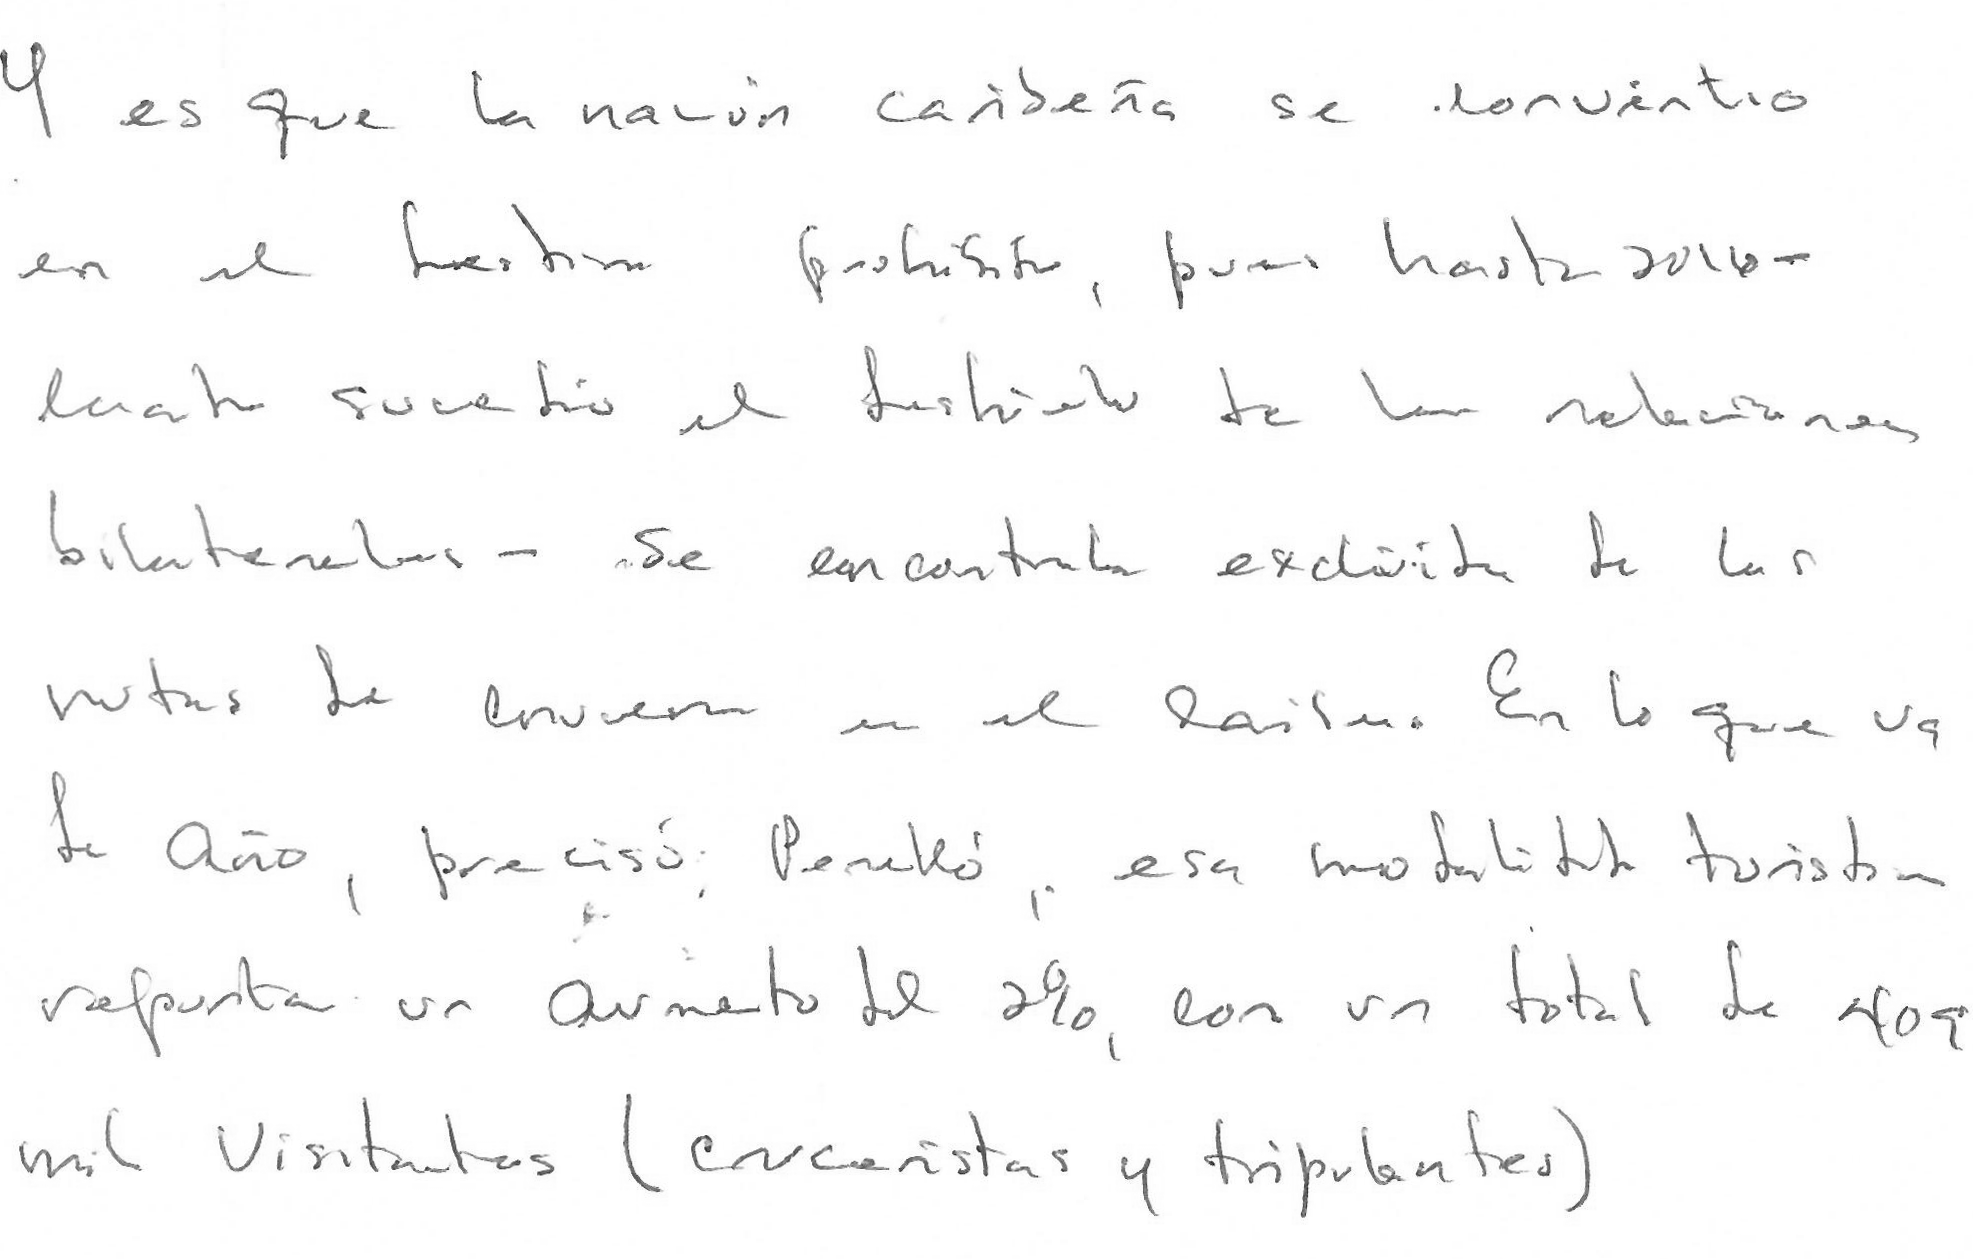 Y es que la nación caribeña se convirtió
en el destino prohibido, pues hasta 2016-
cuando sucedió el deshielo de las relaciones
bilaterales - se encontraba excluida de las
rutas de cruceros en el Caribe. En lo que va
de año, precisó, Perelló, esa modalidad turística
reporta un aumento del 2%, con un total de 409
mil visitantes (cruceristas y tripulantes)